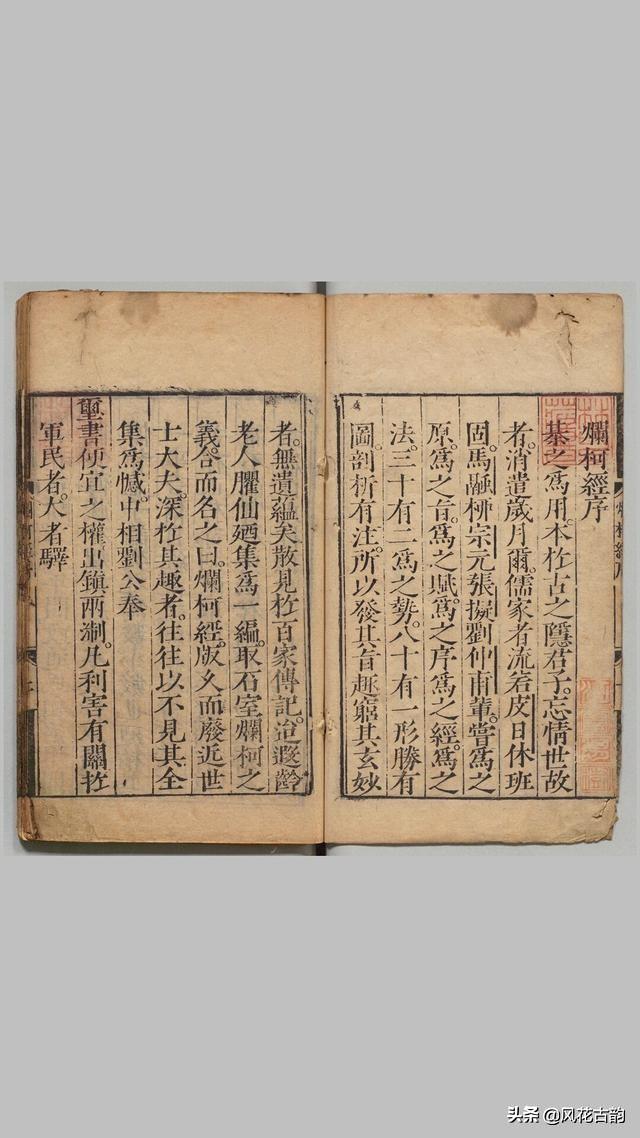 爛柯經序
棊之爲用。本於古之隱君子。忘情世故
者。消遣歲月爾。儒家者流。若皮日休班
固馬融栁宗元張擬劉仲甫輩。嘗爲之
原爲之旨。爲之賦。爲之序。爲之經。爲之
法。三十有二爲之勢。八十有一形勝有
圖剖析有注。所以發其旨趣。窮其玄妙
者。無遺蘊矣。散見於百家傳記。迨遐齡
老人臞仙廼集爲一編。取石室爛柯之
義。合而名之曰。爛柯經。版久而廢。近世
士大夫。深於其趣者。往往以不見其全
集爲憾。中相劉公奉
璽書。便宜之權。出鎮两淛。凡利害有關於
軍民者。大者驛
头条 @风花古韵